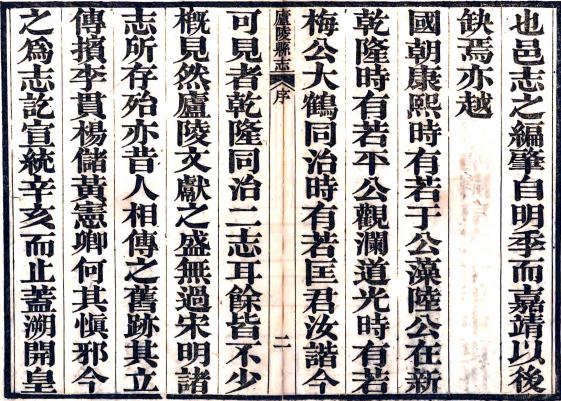 也邑志之編肇自明季而嘉靖以後
缺焉亦越
國朝康熙時有若于公藻陸公在新
乾隆時有若平公觀瀾道光時有若
梅公大鶴同治時有若匡君汝諧今
廬陵縣志
序
二
可見者乾隆同治二志耳餘皆不少
槪見然廬陵文獻之盛無過宋明諸
志所存殆亦昔人相傳之舊跡其立
傳擯李貫楊儲黃憲卿何其愼邪今
之爲志訖宣統辛亥而止蓋溯開皇